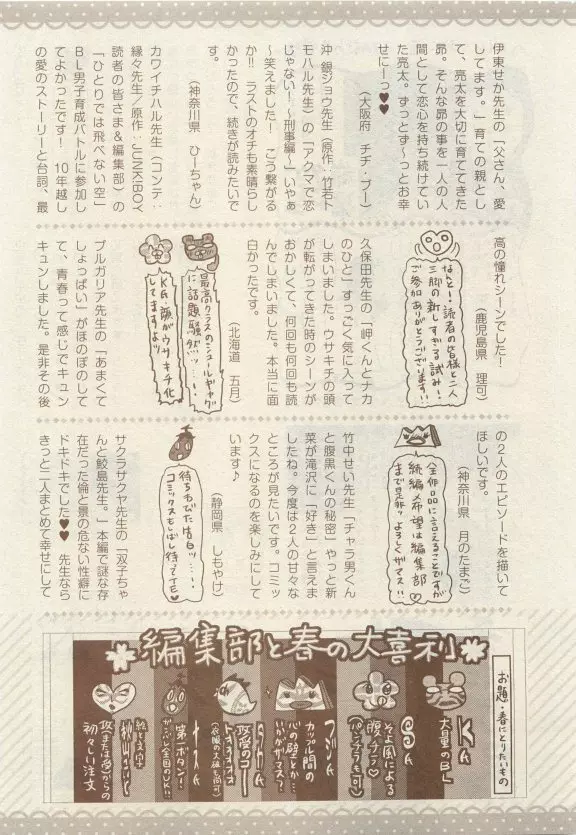 伊東せか先生の「父さん、愛
してます。」育ての親とし
て、亮太を大切に育ててきた
昴。そんな昴の事を一人の人
間として恋心を持ち続けてい
た亮太。ずっとず〜っとお幸
せにーっ♥♥
（大阪府　チチ・ブー）
沖 銀ジョウ先生（原作：竹若ト
モハル先生）の「アクマで恋
じゃない！〜刑事編〜」いやぁ
〜笑えました！　こう繋がる
か!!　ラストのオチも素晴らし
かったので、続きが読みたいで
す。
（神奈川県　ひーちゃん）
カワイチハル先生（コンテ：
緑々先生／原作：JUNKIBOY
読者の皆さま&編集部）の
「ひとりでは飛べない空」
BL男子育成バトルに参加し
てよかったです！　10年越し
の愛のストーリーと台詞、最
高の憧れシーンでした！
（鹿児島県　理可）
なんと！読者の皆様と二人
三脚の新しすぎる試み！
ご参加ありがとうございます!!
久保田先生の「岬くんとナカ
のひと」すっごく気に入って
しまいました。ウサキチの頭
が転がってきた時のシーンが
おかしくて、何回も何回も読
んでしまいました。本当に面
白かったです。
（北海道　五月）
最高クラスのシュールギャグ
に話題騒然ッ…!
KA・顔がウサキチ化
してますよッ
ブルガリア先生の「あまくて
しょっぱい」がほのぼのして
て、青春って感じでキュン
キュンしました。是非その後
の2人のエピソードを描いて
ほしいです。
（神奈川県　月のたまご）
全作品に言えることですが
続編希望は編集部
まで是非ッよろしくザマス!!
竹中せい先生「チャラ男くん
と腹黒くんの秘密」やっと新
菜が滝沢に「好き」と言えま
したね。今度は2人の甘々な
ところが見たいです。コミッ
クスになるのを楽しみにして
います♪
（静岡県　しもやけ）
待ちわびた告白ッ…!
コミックスもしばし待ってTE♥
サクラサクヤ先生の「双子ちゃ
んと鮫島先生。」本編で謎な存
在だった倫と景の危ない性癖に
ドキドキでした♥♥　先生なら
きっと二人まとめて幸せにして
編集部と春の大喜利
お題・春にとりたいもの
KA
大量のBL
SA
そよ風による
腹チラ♡
（パンチラも可）
フジA
カップル間の
心の壁とか…
いかがザマス？
攻受のコート
（衣服の大抵も尚可）
イケA
第一ボタン！
絵と文字
攻（または受）からの
初々しい注文